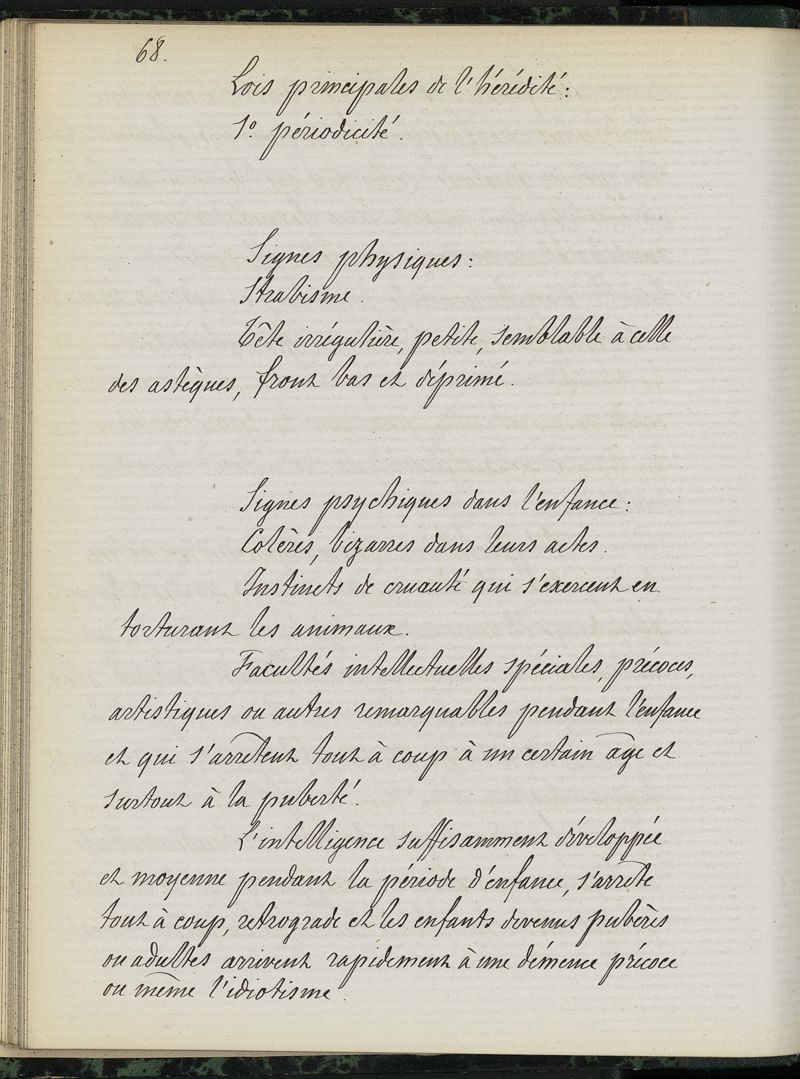 68.
Lois principales de l'hérédité :
1º périodicité.
Signes physiques :
Strabisme.
Tête irrégulière, petite, semblable à celle
des astèques, front bas et déprimé.
Signes psychiques dans l'enfance :
Colères, bizarres dans leurs actes.
Instincts de cruauté qui s'exercent en
torturant les animaux.
Facultés intellectuelles spéciales, précoces,
artistiques ou autres remarquables pendant l'enfance
et qui s'arrêtent tout à coup à un certain âge et
surtout à la puberté.
L'intelligence suffisamment développée
et moyenne pendant la période d'enfance, s'arrête
tout à coup, retrograde et les enfants devenus pubères
ou adultes arrivent rapidement à une démence précoce
ou même l'idiotisme.